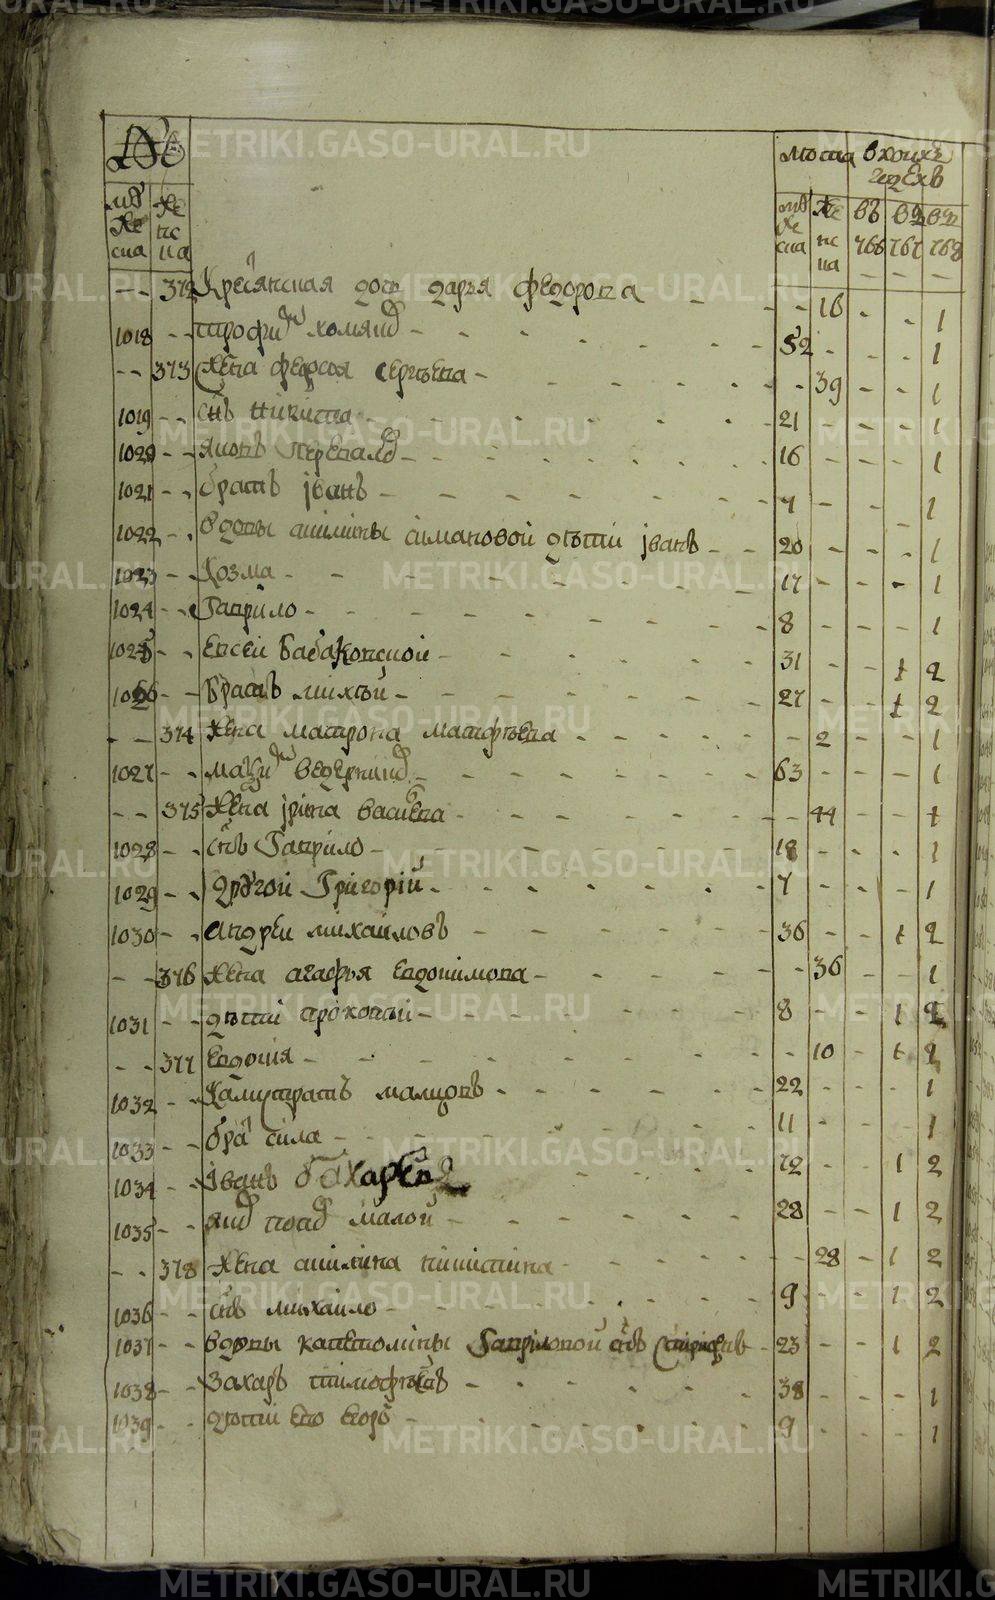 METRIKI.GASO-URAL.RU
№
лѣта в коихъ
годехъ
му
же
ска
же
нс
ка
му
же
ска
же
нс
ка
въ
766
въ
767
въ
768
372 Кресянская дочь дарья федорова 16 1
1018 трофим 52 1
373 жена федосья сергѣева 39 1
1019 снъ никита 21 1
1020 яковъ 16 1
1021 братъ іванъ 7 1
1022 вдовы акилины симановой дѣти іванъ 20 1
1023 козма 17 1
1024 гаврило 8 1
1025 евсей бабаковской 31 1 2
1026 братъ михей 27 1 2
374 жена матрона матфѣева 2 1
1027 максим 63 1
375 жена ірина васильева 44 1
1028 снъ гаврило 18 1
1029 другой григорій 7 1
1030 андрей михайловъ 36 1 2
376 жена агафья евдокимова 36 1
1031 дѣти прокопей 8 1 2
377 евдокия 10 1 2
1032 калистратъ малцовъ 22 1
1033 бра сила 11 1
1034 іванъ бахарев 72 1 2
1035 малой 28 1 2
378 жена акилина никитина 28 1 2
1036 снъ михайло 9 1 2
1037 вдовы капетолины гавриловой снъ 23 1 2
1038 захаръ тимофѣевъ 38 1
1039 дѣти ево егоръ 9 1